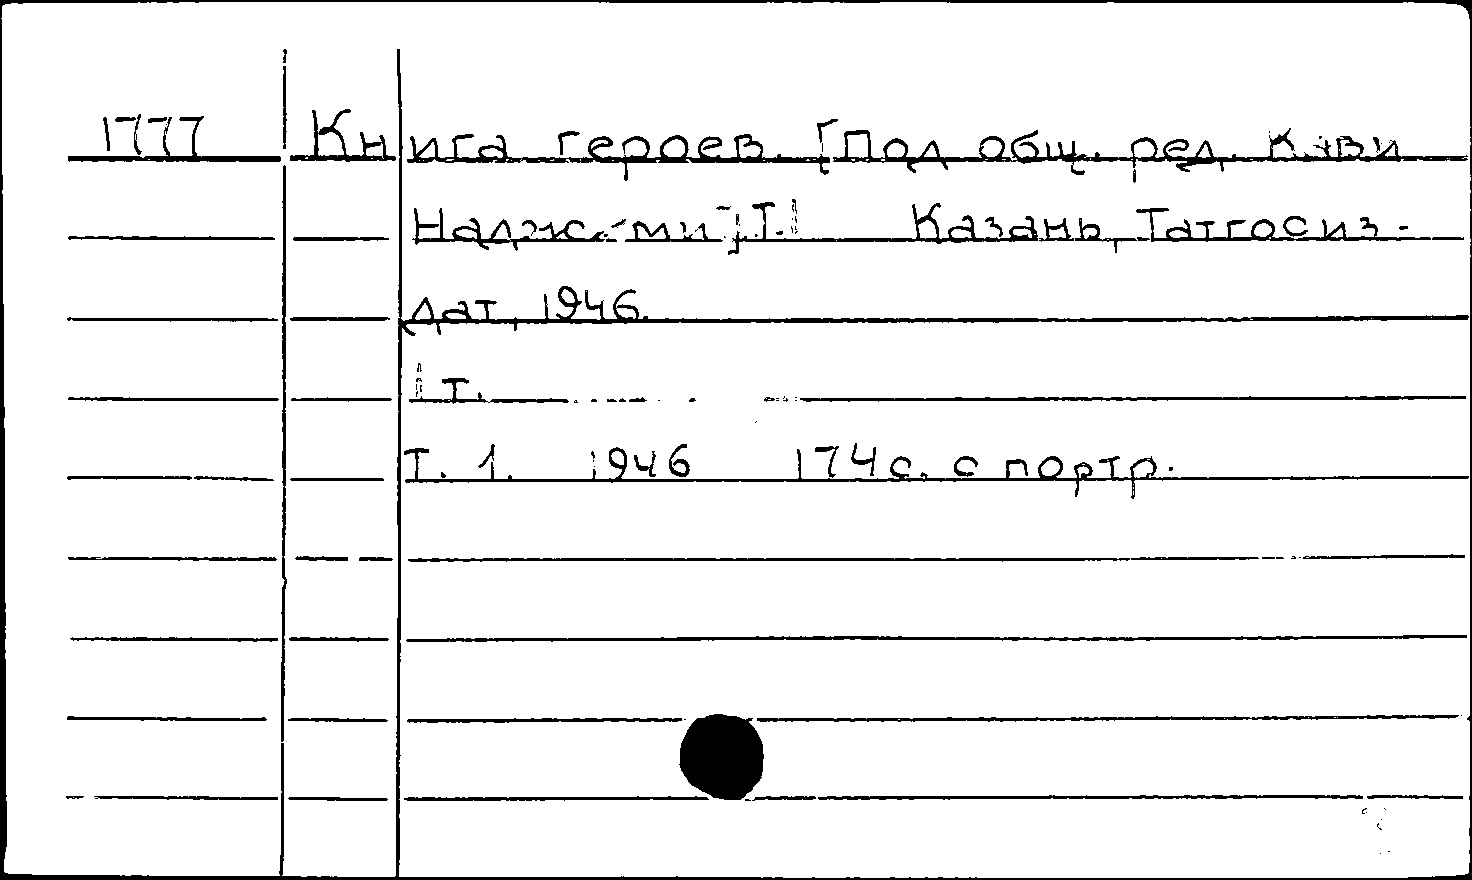 1777 Книга героев. [Под общ. ред. Кави
Наджми] Т.1 Казань, Татгосиз-
дат, 1946.
1 т.
Т. 1. 1946 174 с. с портр.